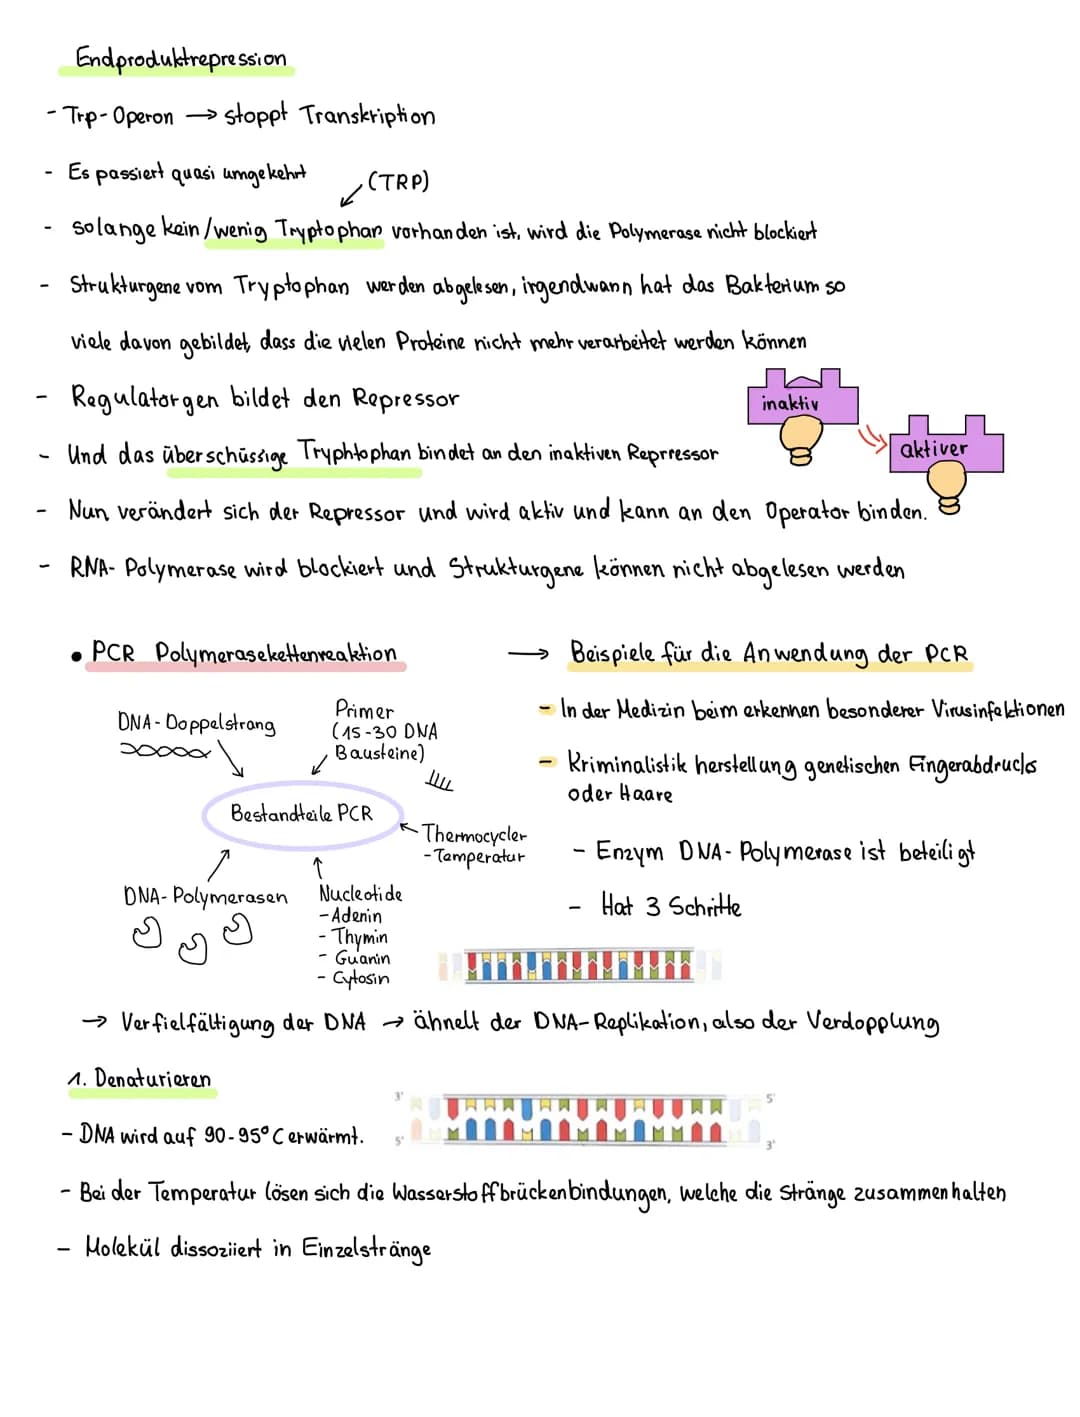 Endproduktrepression
- Trp-Operon → stoppt Transkription
- Es passiert quasi umgekehrt
(TRP)
- solange kein/wenig Tryptophan vorhanden ist, wird die Polymerase nicht blockiert
- Strukturgene vom Tryptophan werden abgelesen, irgendwann hat das Bakterium so
viele davon gebildet, dass die vielen Proteine nicht mehr verarbeitet werden können
- Regulatorgen bildet den Repressor
inaktiv
aktiver
- Und das überschüssige Tryphtophan bindet an den inaktiven Reprressor
- Nun verändert sich der Repressor und wird aktiv und kann an den Operator binden.
- RNA-Polymerase wird blockiert und Strukturgene können nicht abgelesen werden
• PCR Polymerasekettenreaktion
DNA-Doppelstrang
Primer
(15-30 DNA
Bausteine)
Bestandteile PCR
Thermocycler
-Temperatur
DNA-Polymerasen
Nucleotide
-Adenin
- Thymin
- Guanin
- Cytosin
→ Beispiele für die Anwendung der PCR
- In der Medizin beim erkennen besonderer Virusinfektionen
- Kriminalistik herstellung genetischen Fingerabdrucks
oder Haare
- Enzym DNA-Polymerase ist beteiligt
- Hat 3 Schritte
→ Verfielfältigung der DNA → ähnelt der DNA-Replikation, also der Verdopplung
1. Denaturieren
3' 5'
- DNA wird auf 90-95°C erwärmt.
5' 3'
- Bei der Temperatur lösen sich die Wasserstoffbrückenbindungen, welche die Stränge zusammenhalten
- Molekül dissoziiert in Einzelstränge